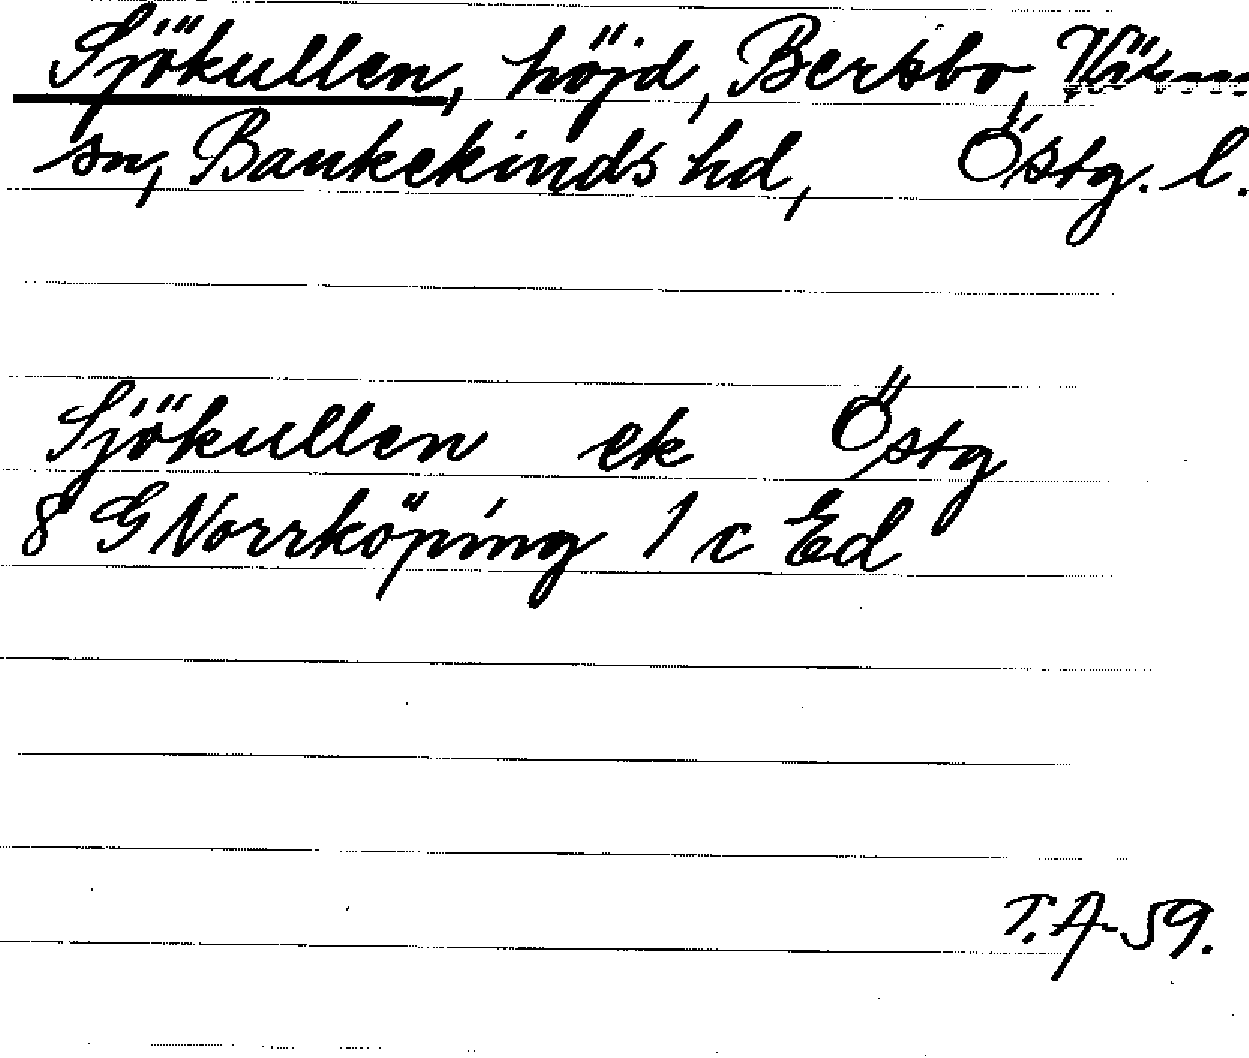 Sjökullen, höjd, Bersbo,
sn, Bankekinds hd, Östg. l.
Sjökullen ek Östg
8 G Norrköping 1 c Ed
T.A-59.